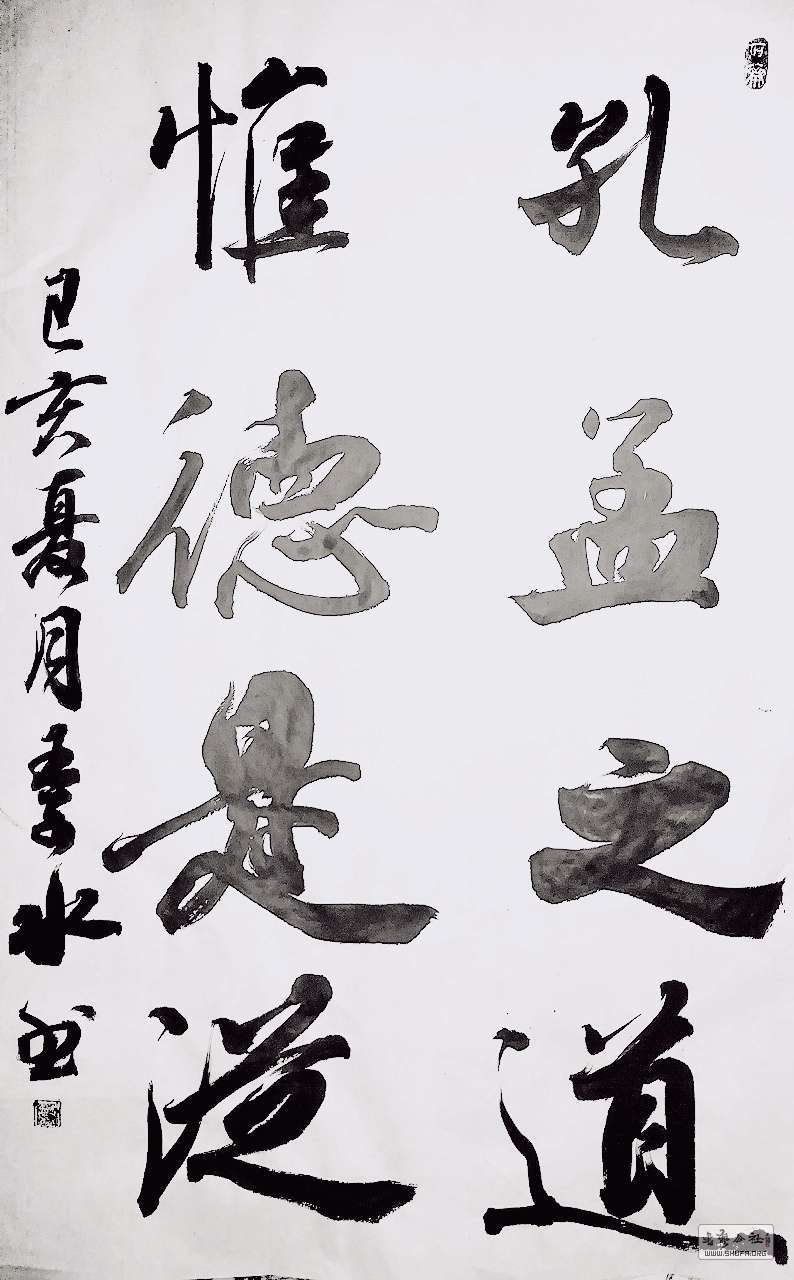 孔孟之道
惟德是從
己亥夏月季水书
WWW.SHUFA.ORG